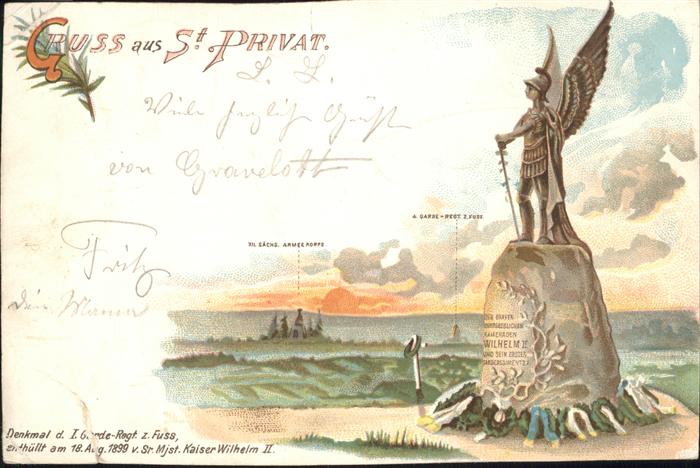 Gruss aus St. Privat.
L. L.
Viele herzliche Grüße
von Gravelott
Fritz
dein Mann
XII. SÄCHS. ARMEE KORPS
4. GARDE-REGT. Z. FUSS.
KAMERADEN
WILHELM II
UND SEIN ERSTES
GARDEREGIMENT Z. F.
Denkmal d. I. Garde-Regt. z. Fuss,
enthüllt am 18. Aug. 1899 v. Sr. Mjst. Kaiser Wilhelm II.